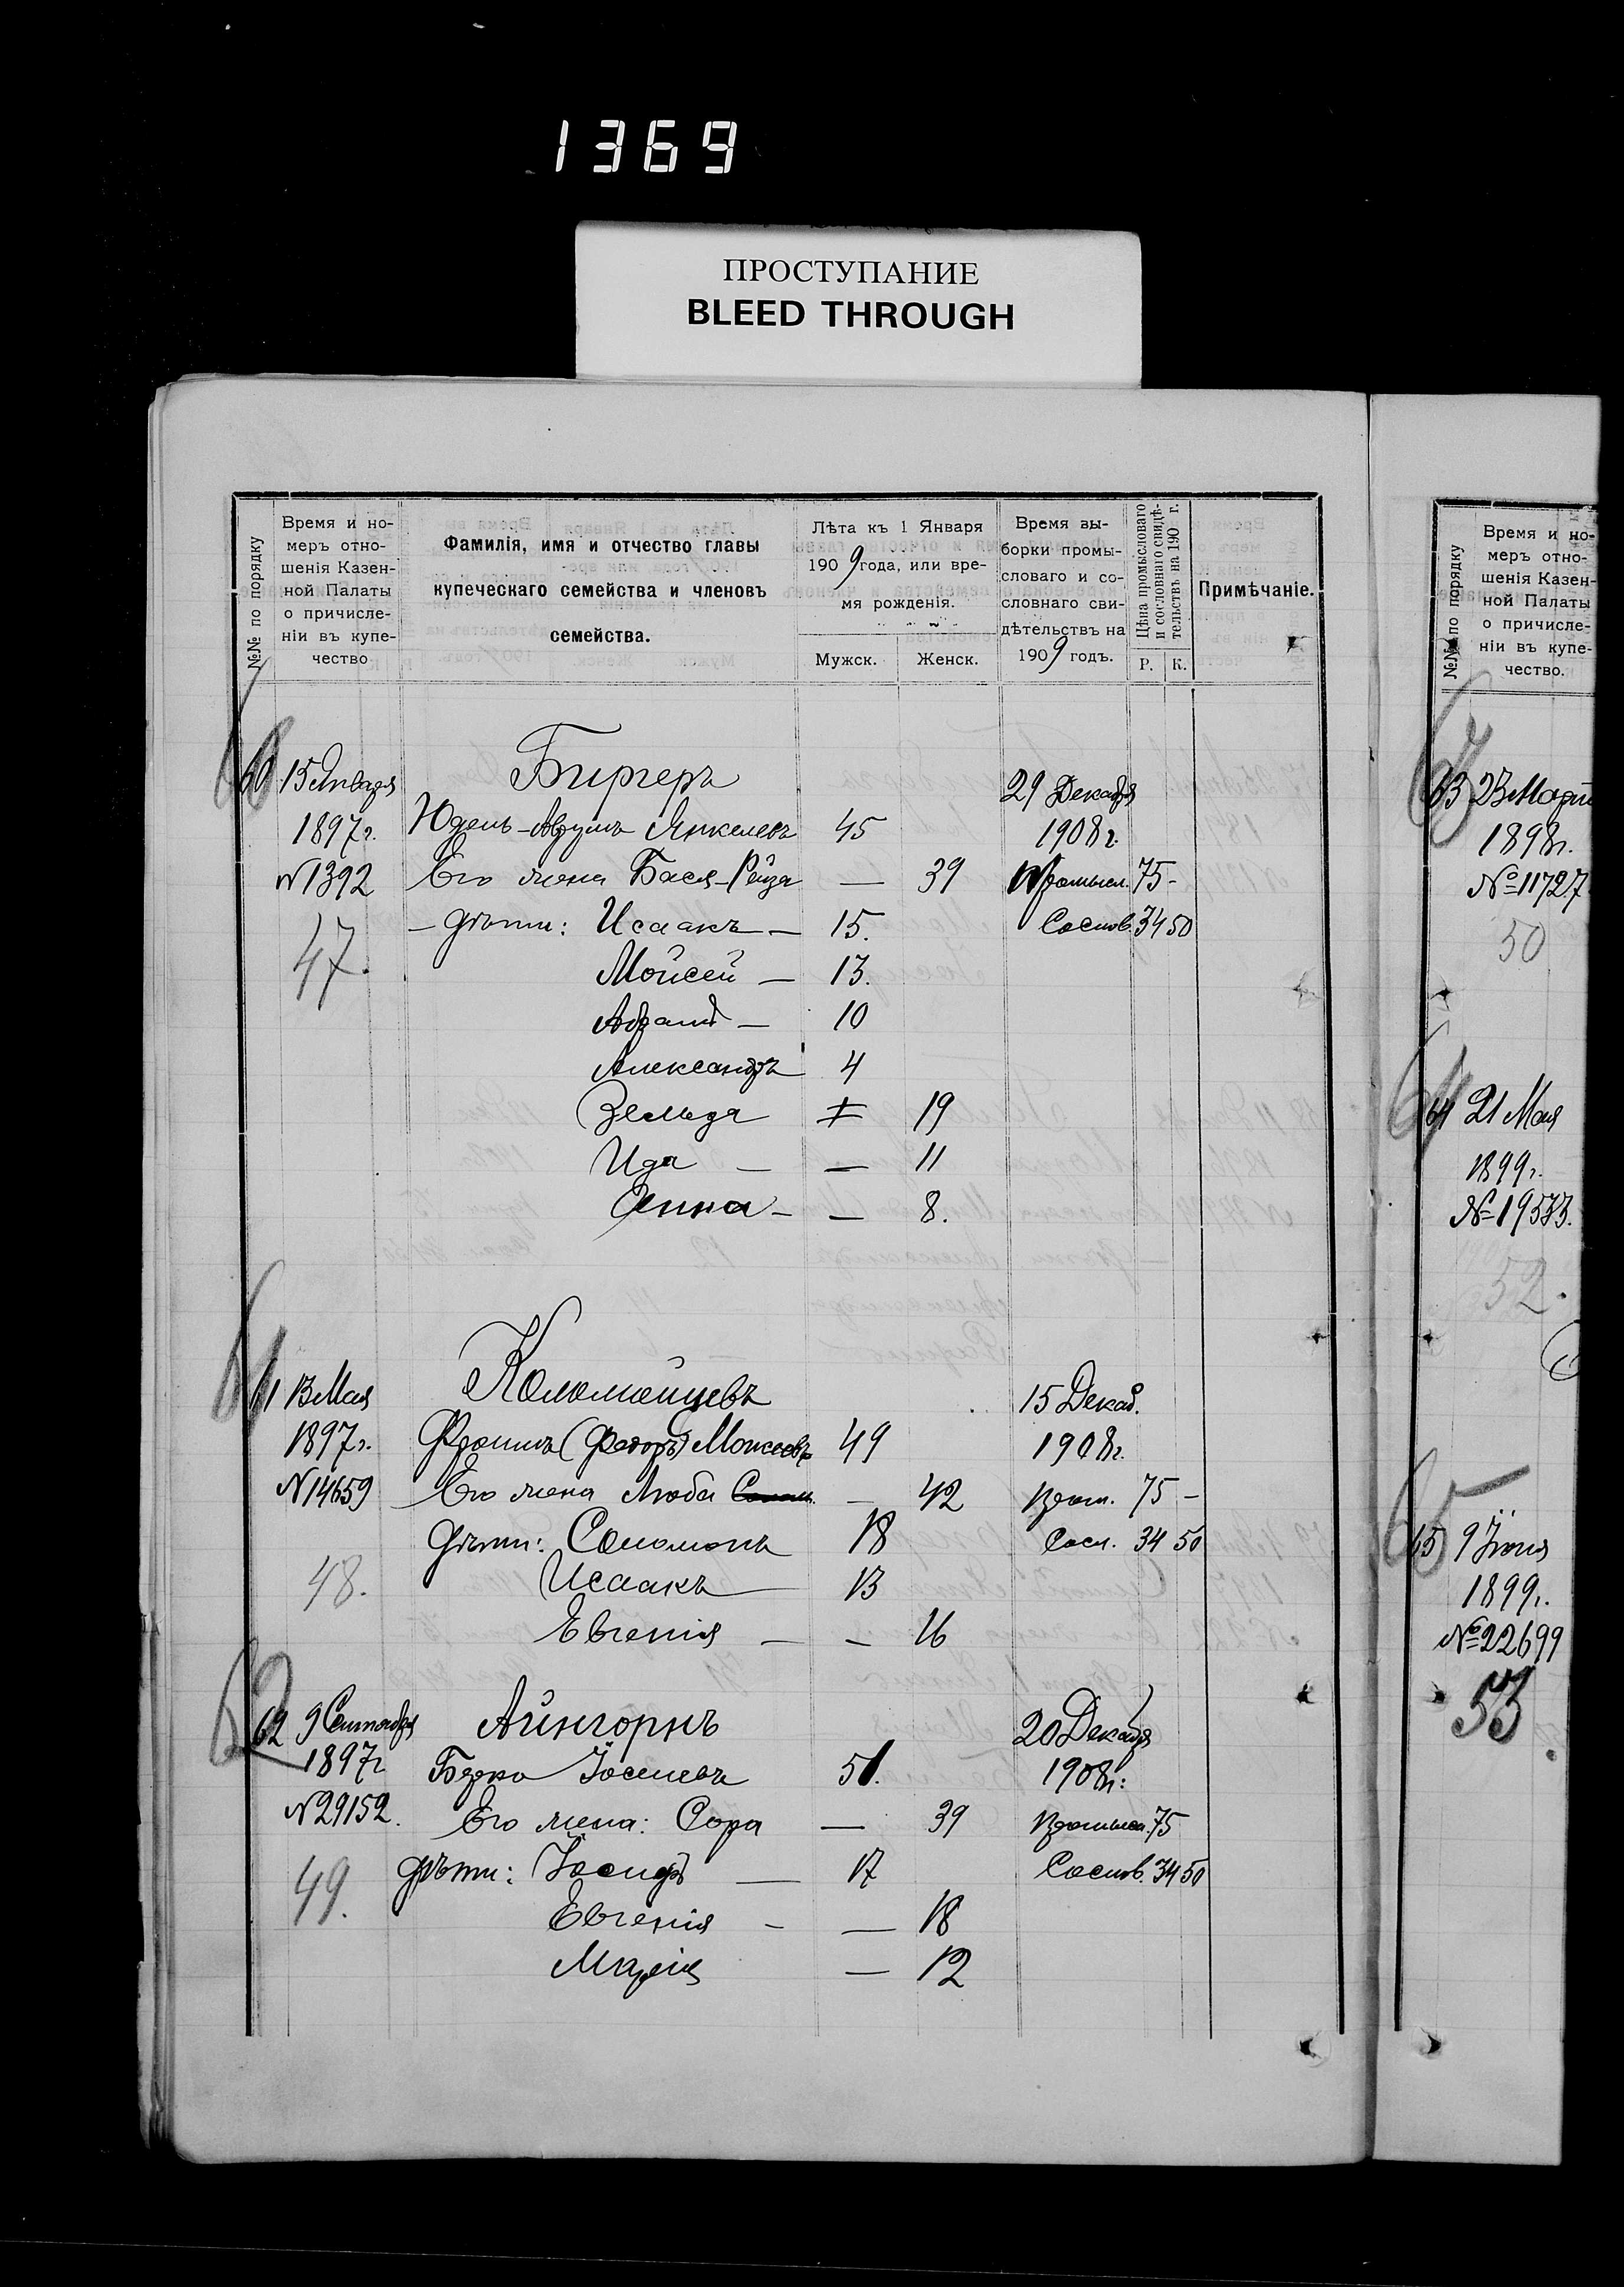 1369
ПРОСТУПАНИЕ
BLEED THROUGH
№№ по порядку
Время и но-
меръ отно-
шенія Казен-
ной Палаты
о причисле-
ніи въ купе-
чество
Фамилія, имя и отчество главы
купеческаго семейства и членовъ
семейства.
Лѣта къ 1 Января
1909 года, или вре-
мя рожденія.
Мужск. Женск.
Время вы-
борки промы-
словаго и со-
словнаго сви-
дѣтельствъ на
1909 годъ.
Цѣна промысловаго
и сословнаго свидѣ-
тельствъ на 190 г.
Р. К.
Примѣчаніе.
60 15 Января Биргеръ 29 Декабря
1897г. Юдель-Аврумъ Янкелевъ 45 1908г.
N1392 Его жена Бася-Рейза — 39 Промысл. 75-
– дѣти: Исаакъ — 15. Сослов. 34 50
47. Мойсей — 13.
Абрамъ — 10
Александръ 4
Зельда 19
Ида — — 11
Анна — — 8.
61 13 Мая Коломойцевъ 15 Декаб.
1897г. Фроимъ (Федоръ) Моисеевъ 49 1908г.
N14659 Его жена Люба — 42 Пром. 75 –
дѣти: Соломонъ 18 Сосл. 34 50
48. Исаакъ 13
Евгенія — — 16
62 9 Сентября Айнгорнъ 20 Декабря
1897г Берко Іоселевъ 51. 1908г.
N29152. Его жена: Сора — 39 Промысл. 75
дѣти: Іосифъ — 17 Сослов. 34 50
49. Евгенія - — 18
Марія — 12
№№ по порядку
Время и но-
меръ отно-
шенія Казен-
ной Палаты
о причисле-
ніи въ купе-
чество.
63 23 Март
1898г.
№11727
50
64 21 Мая
1899г.
52.
65 9 Іюня
1899г.
№22699
53